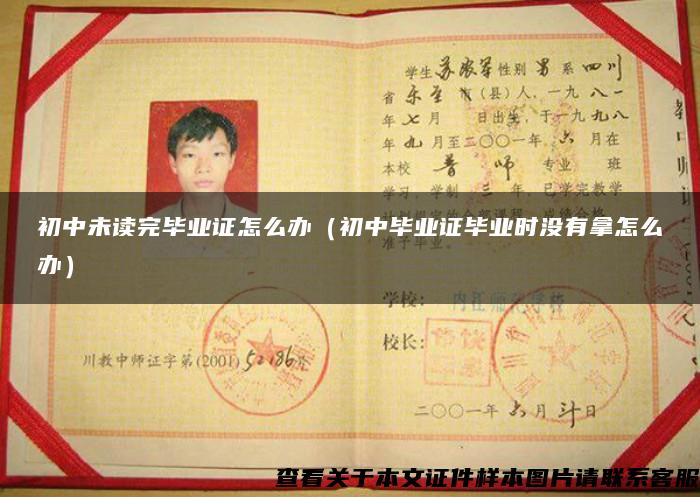 学生 苏农军 性别 男 系 四川
省 乐至 市（县）人，一九八一
年七月 日出生，于一九九八
年九月至二〇〇一年六月在
本校 普师 专业 班
学习，学制三年，已学完教学
准予毕业。
初中未读完毕业证怎么办（初中毕业证毕业时没有拿怎么
办）
学校：内江师范学校
校长：
川教中师证字第(2001)52186号
二〇〇一年六月 日
查看关于本文证件样本图片请联系客服